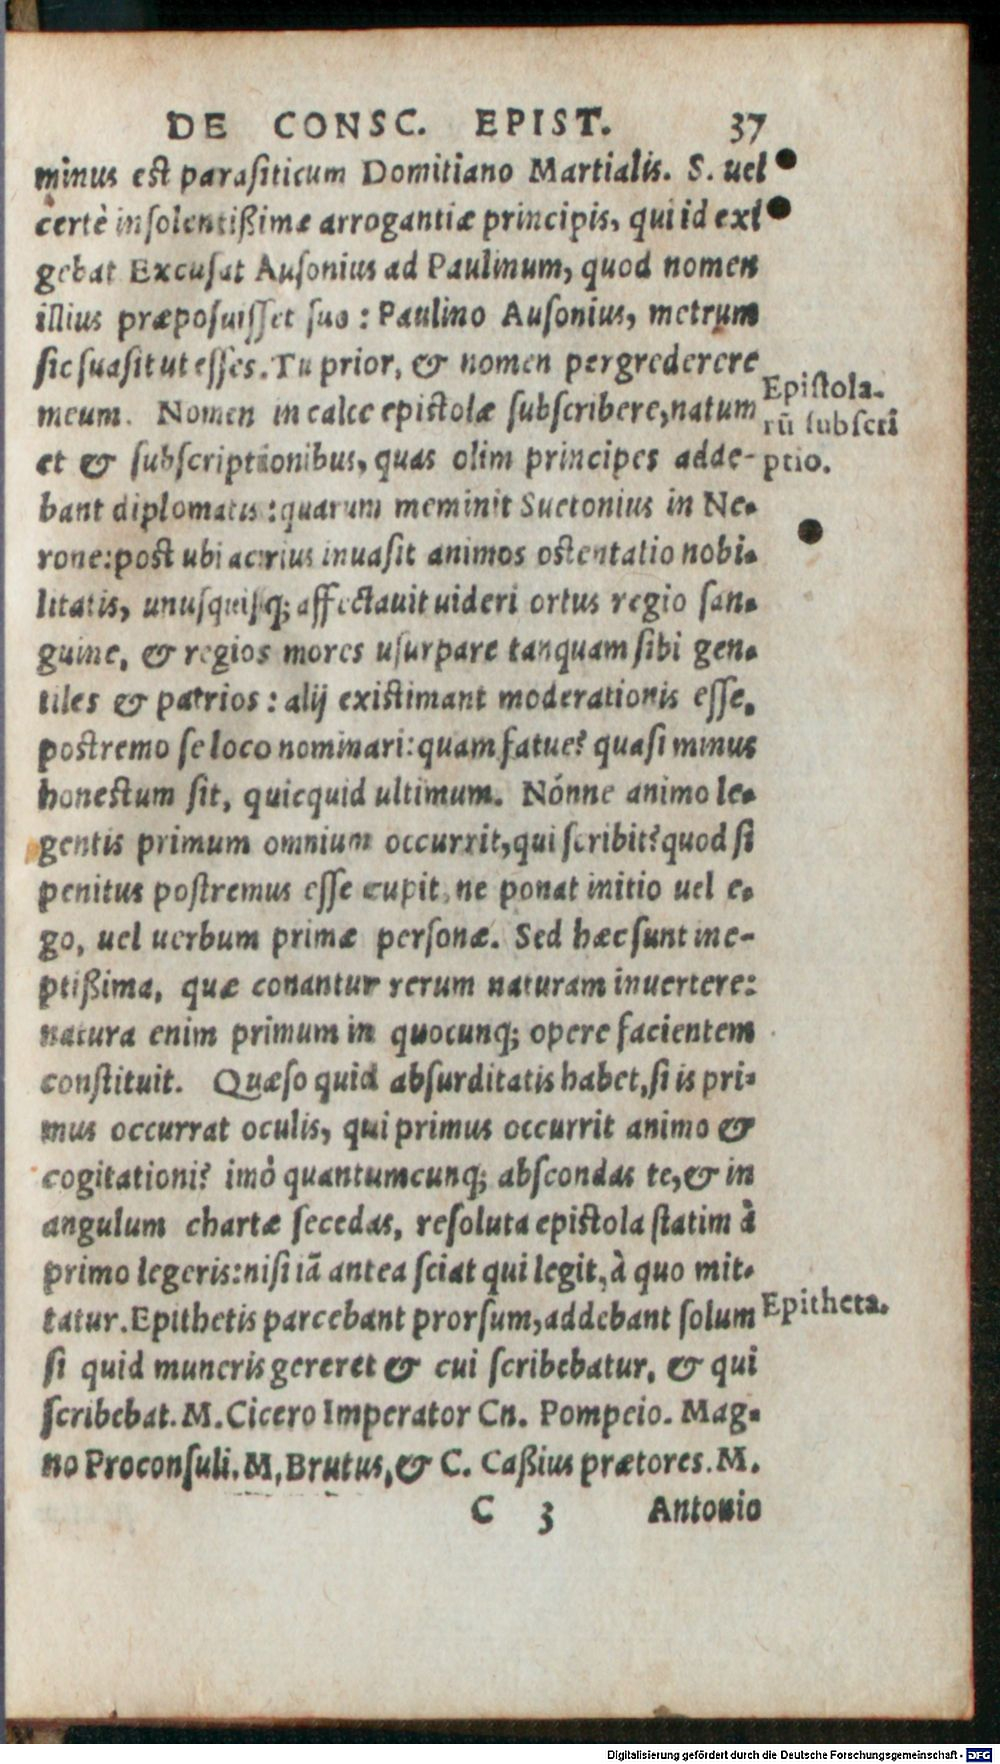 DE CONSC. EPIST. 37
minus est parasiticum Domitiano Martialis. S. uel
certè insolentißimæ arrogantiæ principis, qui id exi
gebat Excusat Ausonius ad Paulinum, quod nomen
illius præposuisset suo: Paulino Ausonius, metrum
sic suasit ut esses. Tu prior, & nomen pergrederere
meum. Nomen in calce epistolæ subscribere, natum
Epistola-
rū subscri
ptio.
et & subscriptionibus, quas olim principes adde-
bant diplomatis: quarum meminit Suetonius in Ne-
rone: post ubi acrius inuasit animos ostentatio nobi-
litatis, unusquisq; affectauit uideri ortus regio san-
guine, & regios mores usurpare tanquam sibi gen-
tiles & patrios: alij existimant moderationis esse,
postremo se loco nominari: quam fatue? quasi minus
honestum sit, quicquid ultimum. Nónne animo le-
gentis primum omnium occurrit, qui scribit? quod si
penitus postremus esse cupit, ne ponat initio uel e-
go, uel uerbum primæ personæ. Sed hæc sunt ine-
ptißima, quæ conantur rerum naturam inuertere:
natura enim primum in quocunq; opere facientem
constituit. Quæso quid absurditatis habet, si is pri-
mus occurrat oculis, qui primus occurrit animo &
cogitationi? imò quantumcunq; abscondas te, & in
angulum chartæ secedas, resoluta epistola statim à
primo legeris: nisi iã antea sciat qui legit, à quo mit-
tatur. Epithetis parcebant prorsum, addebant solum
Epitheta.
si quid muneris gereret & cui scribebatur, & qui
scribebat. M. Cicero Imperator Cn. Pompeio. Mag-
no Proconsuli. M, Brutus, & C. Caßius prætores. M.
C 3 Antonio
Digitalisierung gefördert durch die Deutsche Forschungsgemeinschaft - DFG